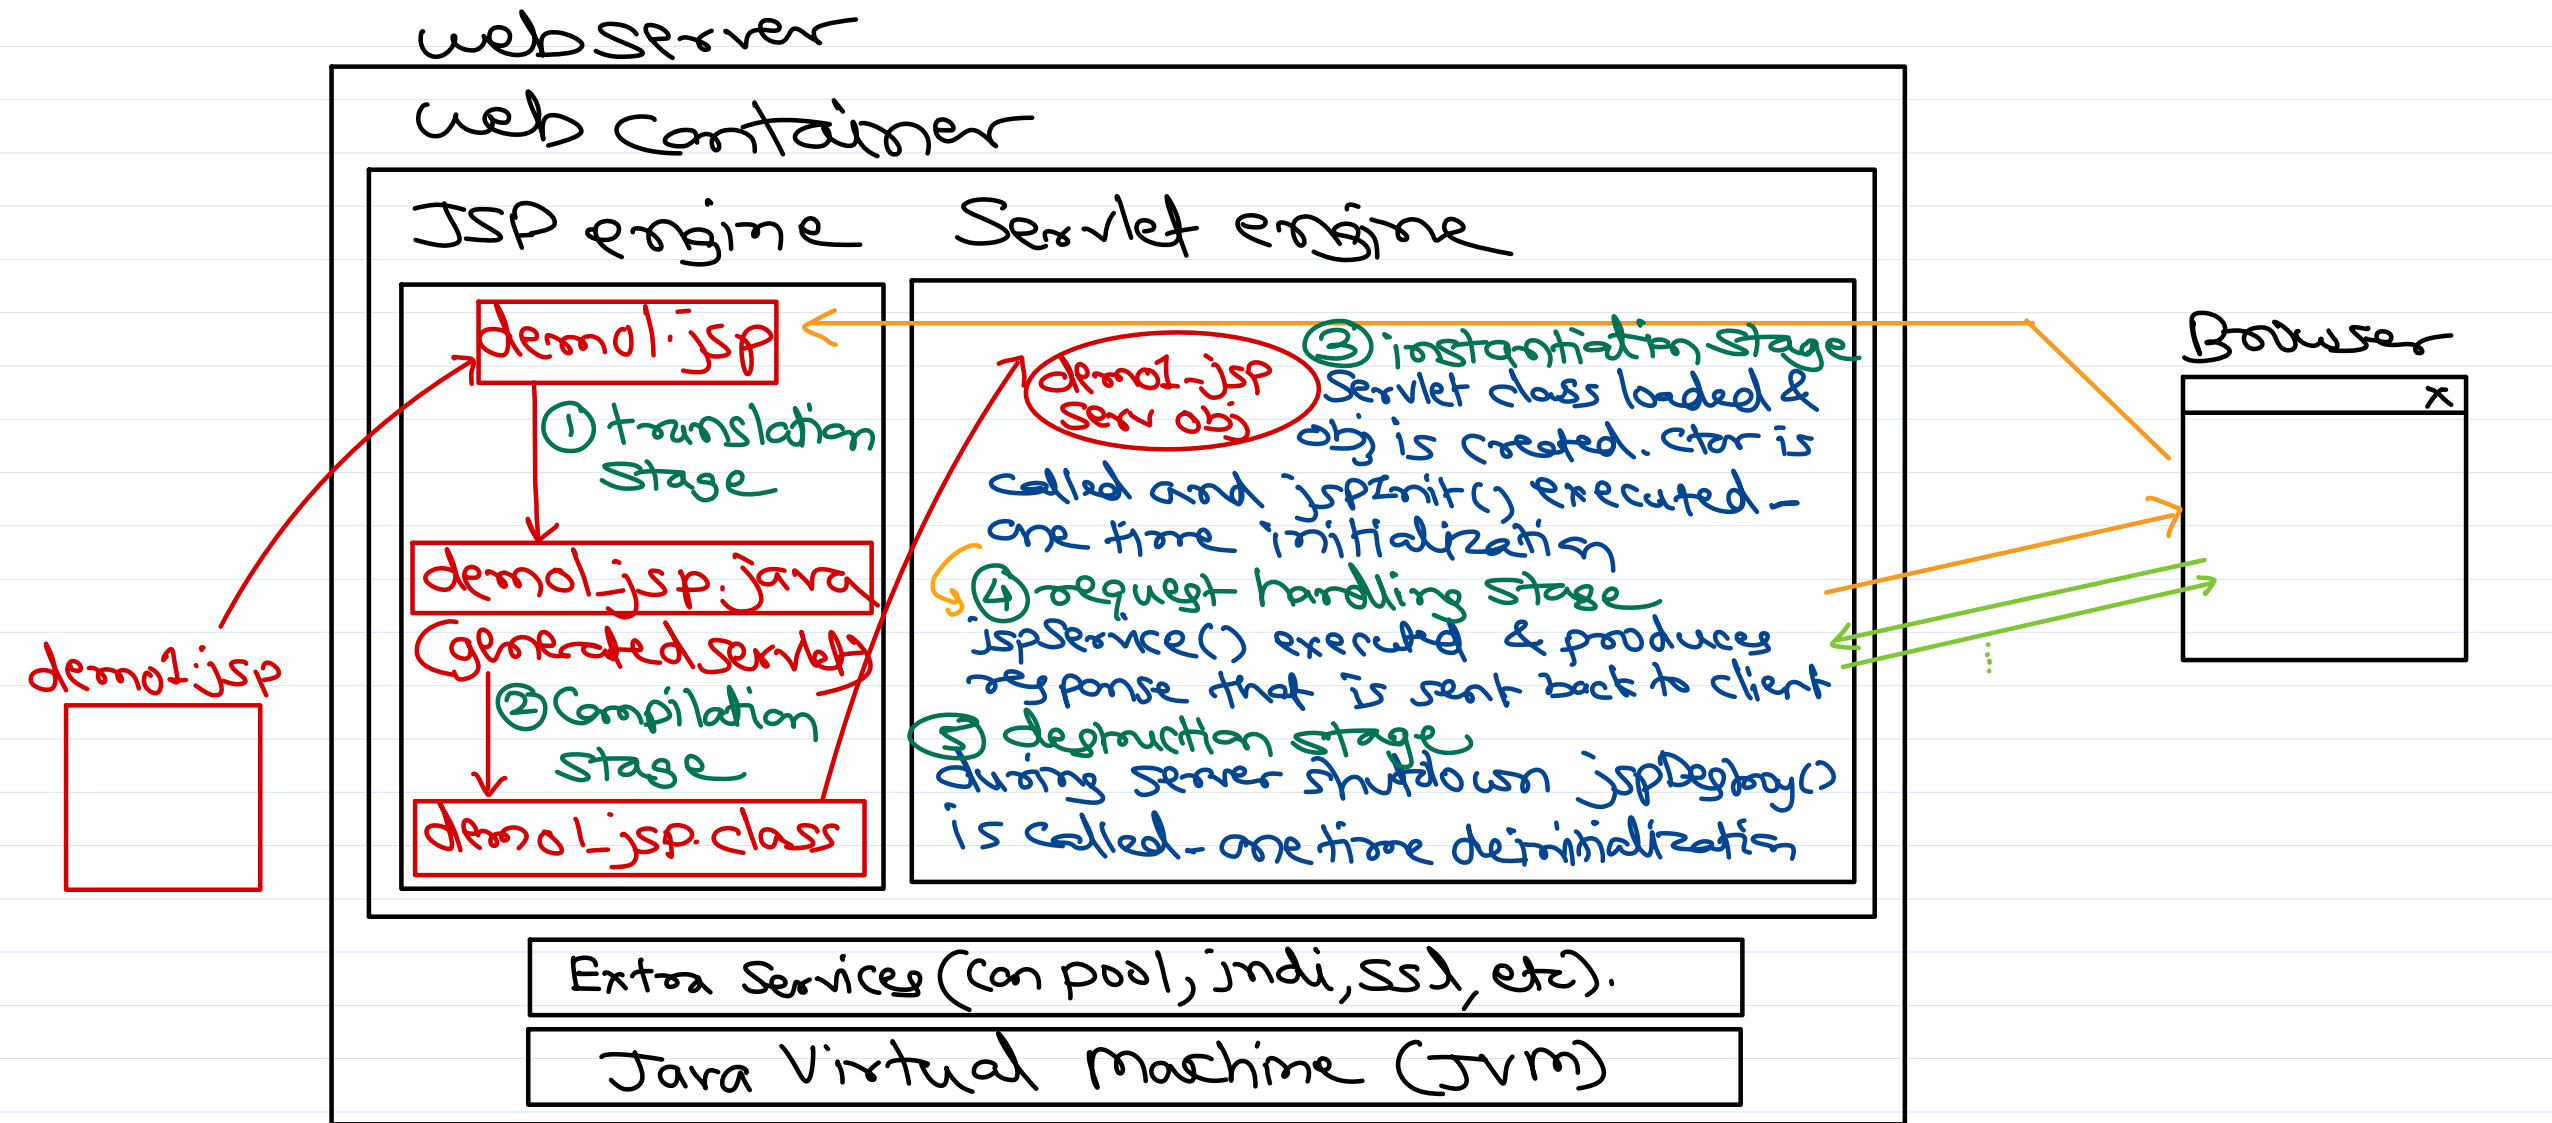 web server
web container
JSP engine
Servlet engine
demo1.jsp
① translation
stage
demo1_jsp.java
(generated servlet)
② Compilation
stage
demo1_jsp.class
demo1.jsp
demo1_jsp
serv obj
③ instantiation stage
servlet class loaded &
obj is created. ctor is
called and jspInit() executed -
one time initialization
④ request handling stage
jspService() executed & produces
response that is sent back to client
⑤ destruction stage
during server shutdown jspDestroy()
is called - one time deinitialization
Browser
x
Extra Services (con pool, jndi, ssl, etc).
Java Virtual Machine (JVM)